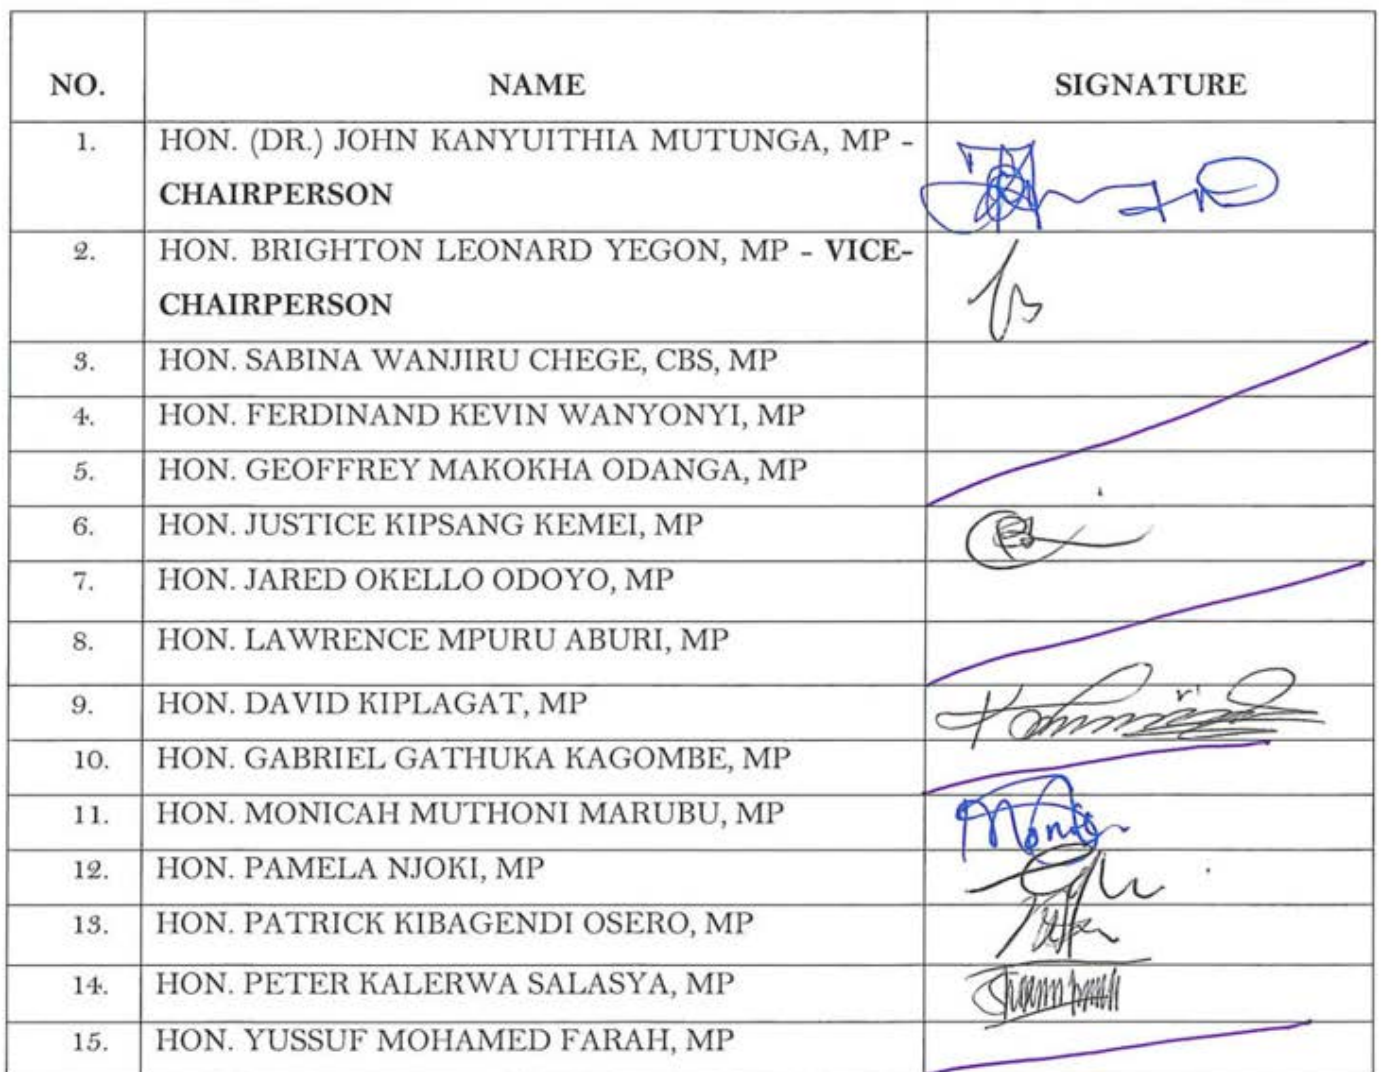 NO. NAME SIGNATURE
1. HON. (DR.) JOHN KANYUITHIA MUTUNGA, MP -
CHAIRPERSON
2. HON. BRIGHTON LEONARD YEGON, MP - VICE-
CHAIRPERSON
3. HON. SABINA WANJIRU CHEGE, CBS, MP
4. HON. FERDINAND KEVIN WANYONYI, MP
5. HON. GEOFFREY MAKOKHA ODANGA, MP
6. HON. JUSTICE KIPSANG KEMEI, MP
7. HON. JARED OKELLO ODOYO, MP
8. HON. LAWRENCE MPURU ABURI, MP
9. HON. DAVID KIPLAGAT, MP
10. HON. GABRIEL GATHUKA KAGOMBE, MP
11. HON. MONICAH MUTHONI MARUBU, MP
12. HON. PAMELA NJOKI, MP
13. HON. PATRICK KIBAGENDI OSERO, MP
14. HON. PETER KALERWA SALASYA, MP
15. HON. YUSSUF MOHAMED FARAH, MP